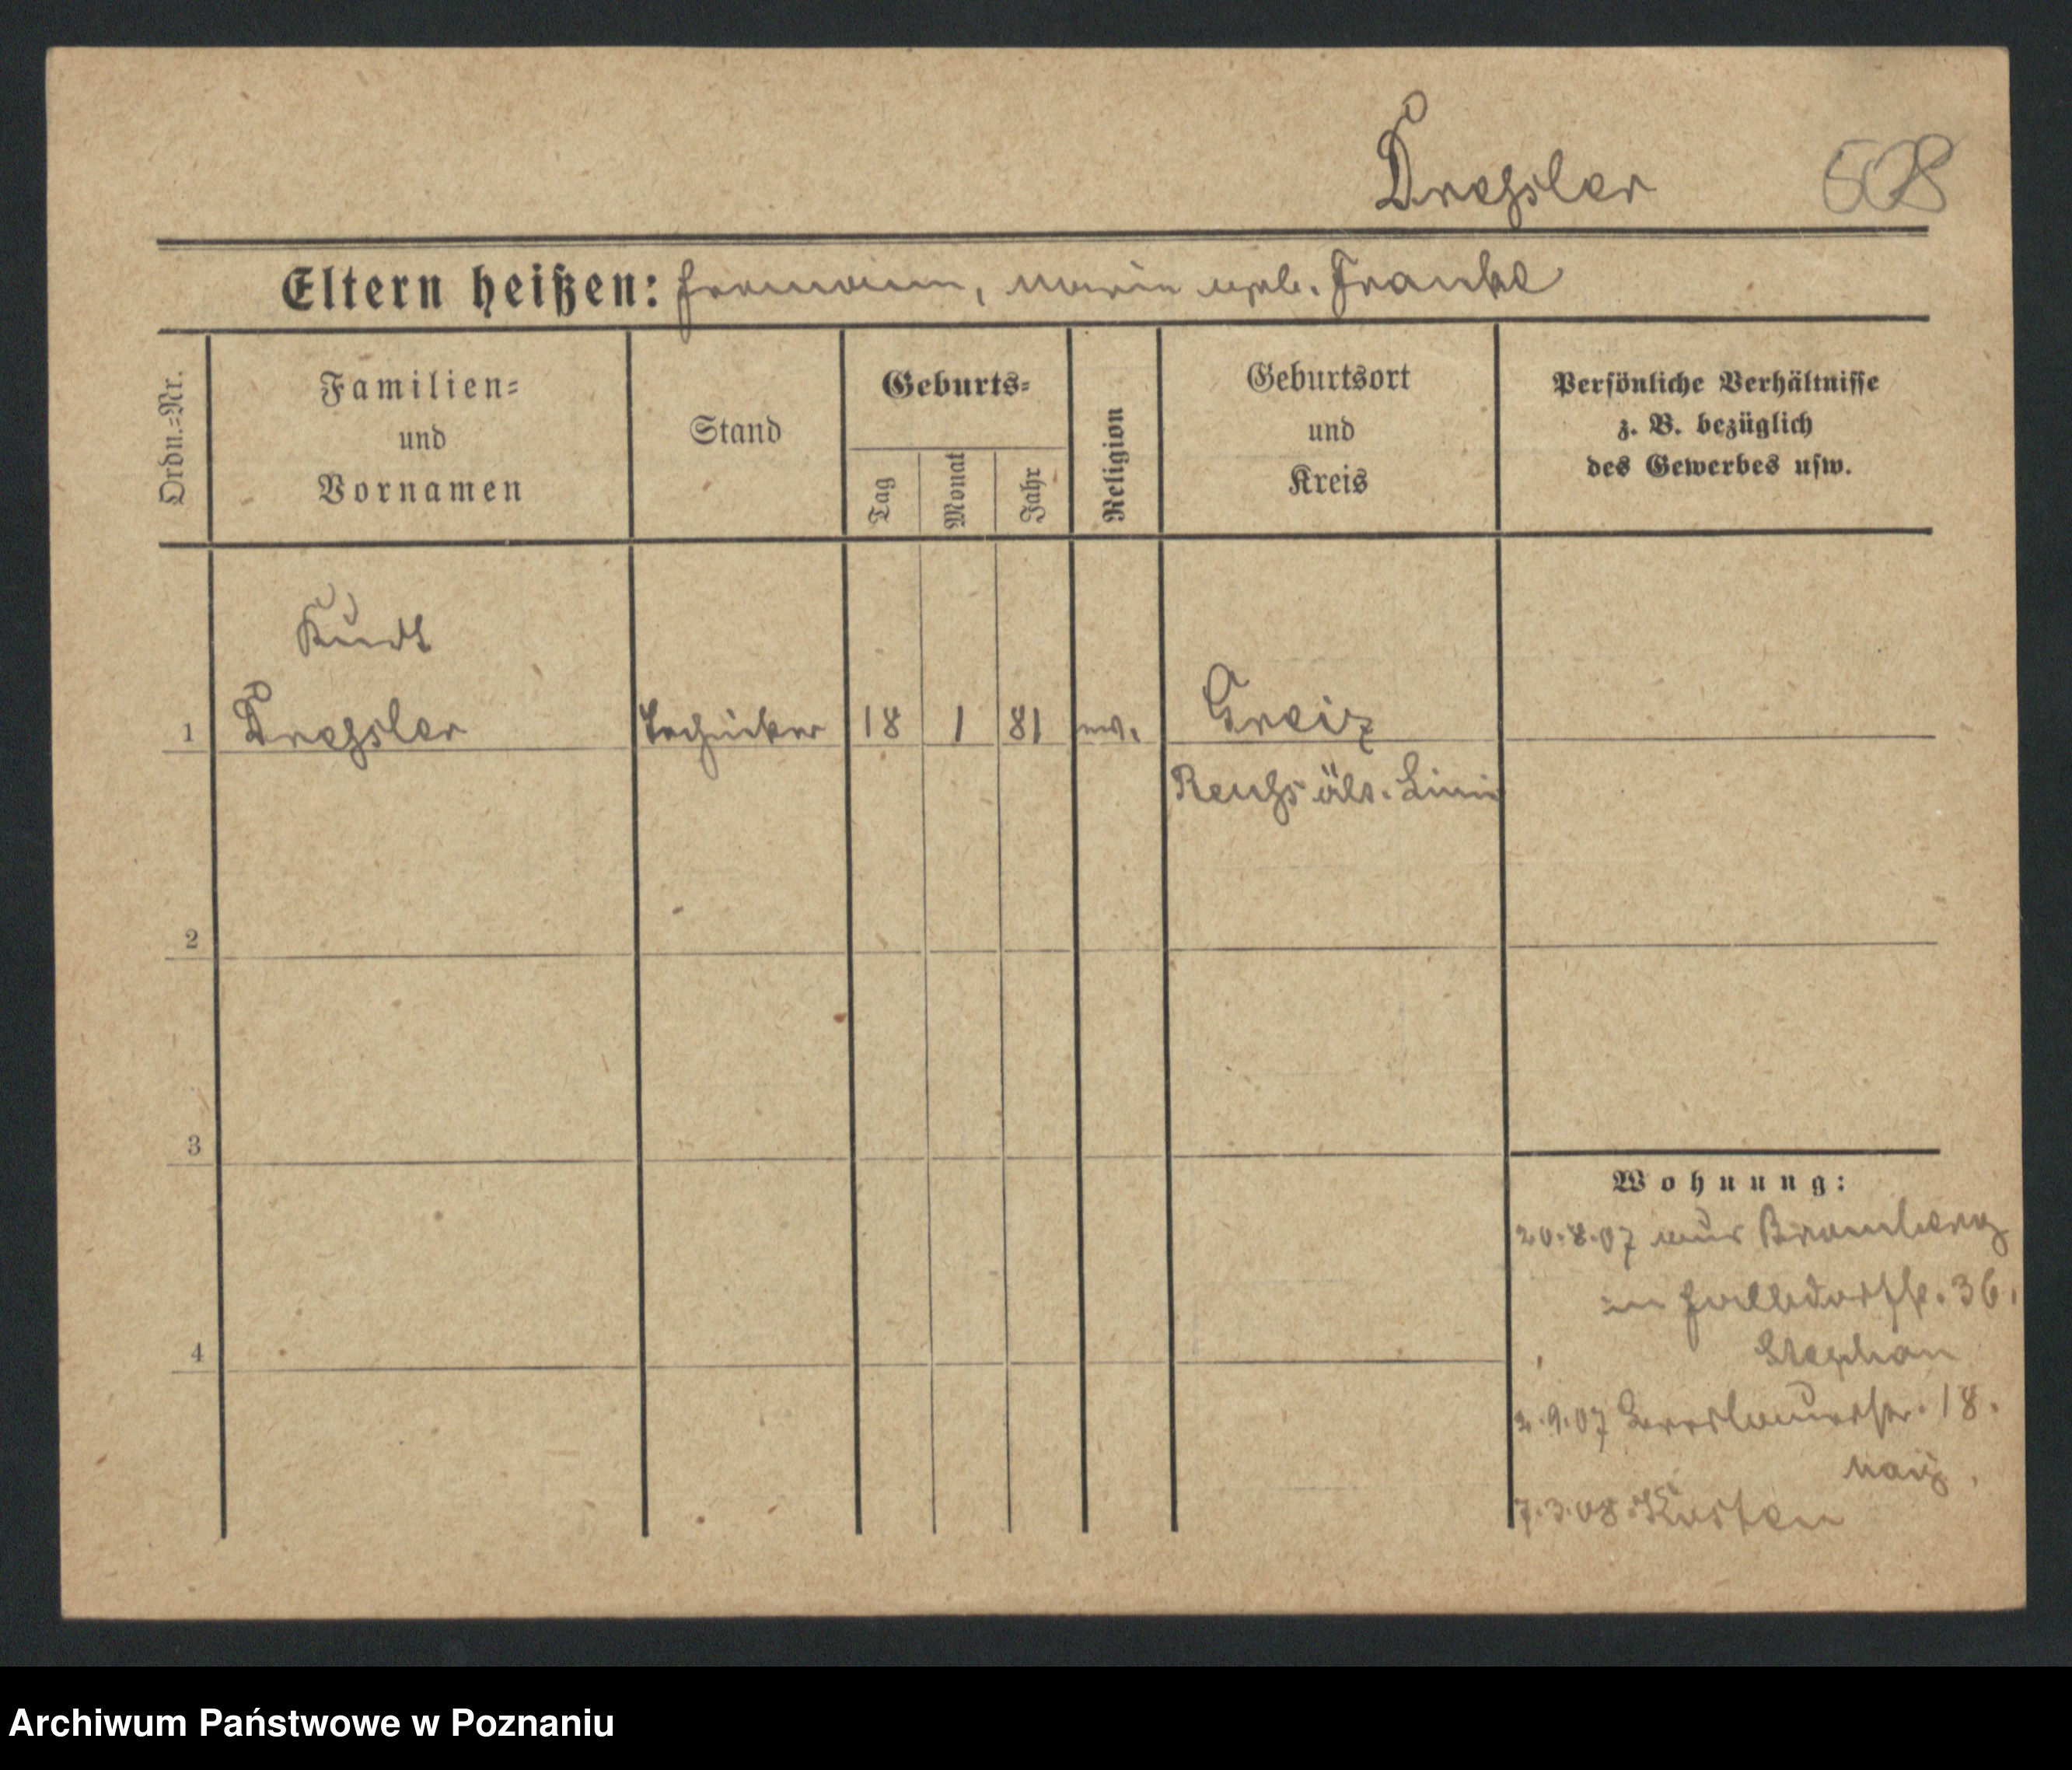 Dressler
608
Eltern heißen: Hermann, Marie geb. Franke
Ordn.-Nr.
Familien-
und
Vornamen
Stand
Geburts-
Tag
Monat
Jahr
Religion
Geburtsort
und
Kreis
Persönliche Verhältnisse
z. B. bezüglich
des Gewerbes usw.
Kurt
1 Dressler Techniker 18 1 81 ev. Greiz
Reuss ält. Linie
2
3
4
Wohnung:
20.8.07 aus Bromberg
in Halbdorfstr. 36.
Stephan
2.9.07 Breslauerstr. 18.
7.3.08 Kosten
Archiwum Państwowe w Poznaniu